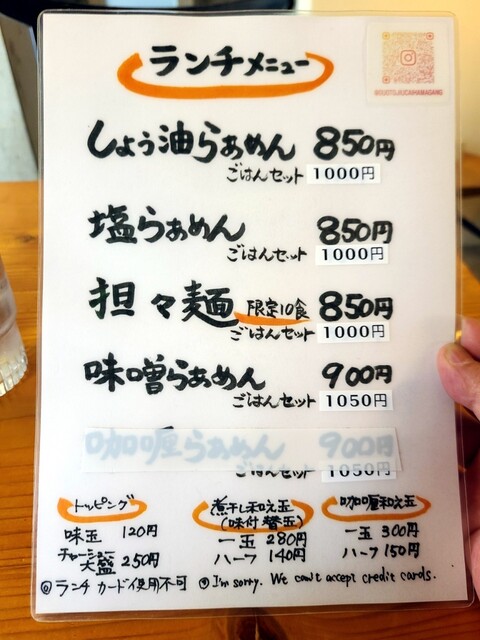 ランチメニュー
しょう油らぁめん 850円
ごはんセット 1000円
塩らぁめん 850円
ごはんセット 1000円
担々麺 限定10食 850円
ごはんセット 1000円
味噌らぁめん 900円
ごはんセット 1050円
咖喱らぁめん 900円
ごはんセット 1050円
トッピング
味玉 120円
チャーシュー
大盛 250円
煮干し和え玉
(味付替玉)
一玉 280円
ハーフ 140円
咖喱和え玉
一玉 300円
ハーフ 150円
@ランチ カード使用不可 I'm sorry. We can't accept credit cards.